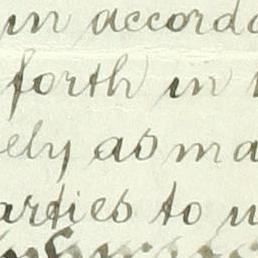 in accorda
forth in
ely as ma
arties to u